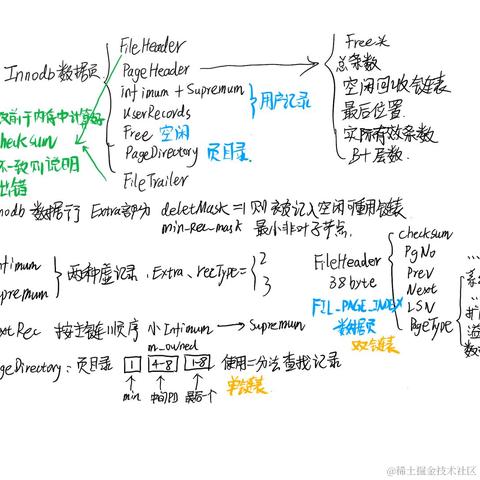 Innodb 数据页
FileHeader
PageHeader
infimum + Supremum
UserRecords
Free 空闲
PageDirectory 页目录
FileTrailer
用户记录
Free头
总条数
空闲回收链表
最后位置
实际有效条数
B+层数
checksum
不一致则说明
出错
nodb 数据行 Extra部分 deletMask = 1 则被记入空闲可重用链表
min-Rec_mask 最小非叶子节点.
fimum
premum
两种虚记录, Extra、recType=
2
3
FileHeader
38byte
FIL_PAGE_INDEX
数据页
双链表
checksum
PgNo
Prev
Next
LSN
PageType
extRec 按主键顺序 小Infimum → Supremum
ageDirectory: 页目录
n_owned
1
4-8
1-8
使用二分法查找记录
min
中间PD
最后一个
单链表
@稀土掘金技术社区